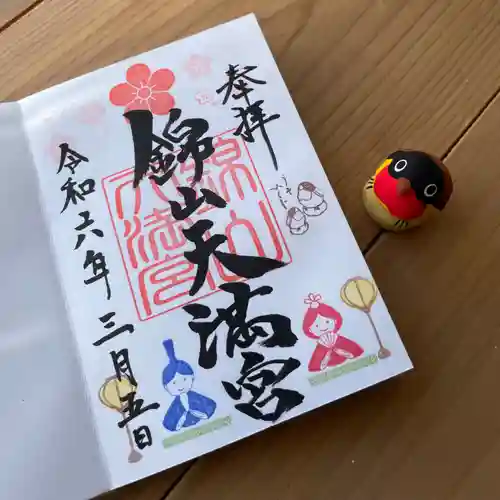 奉拝
錦山天満宮
令和六年三月五日